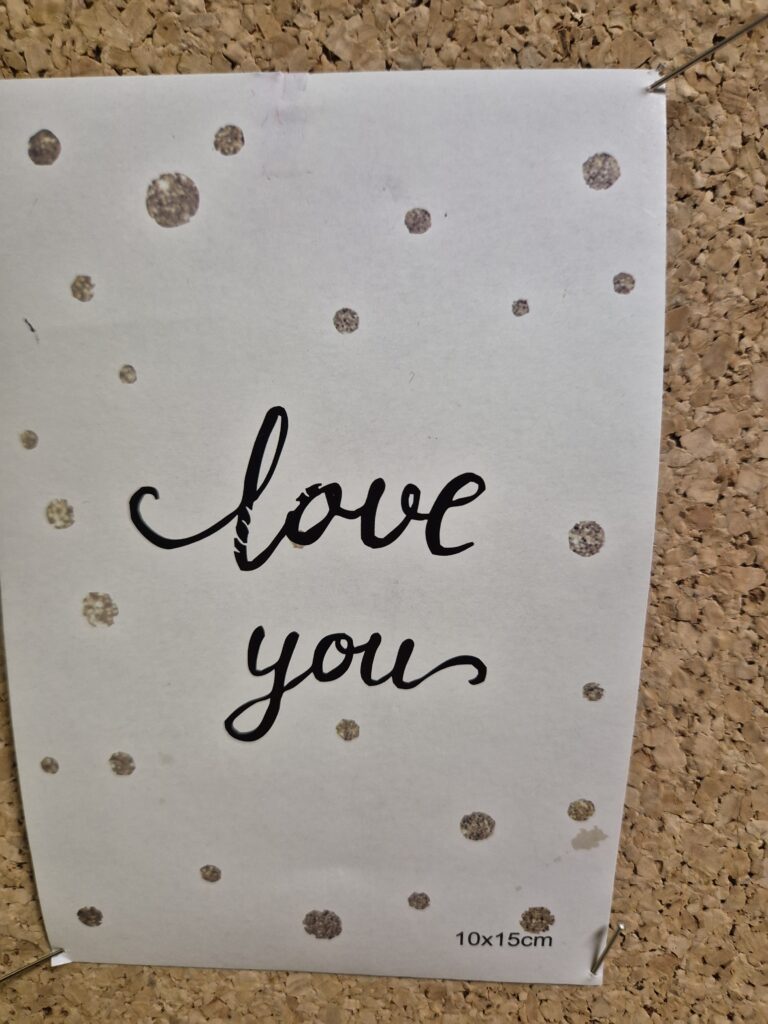 love
you
10x15cm